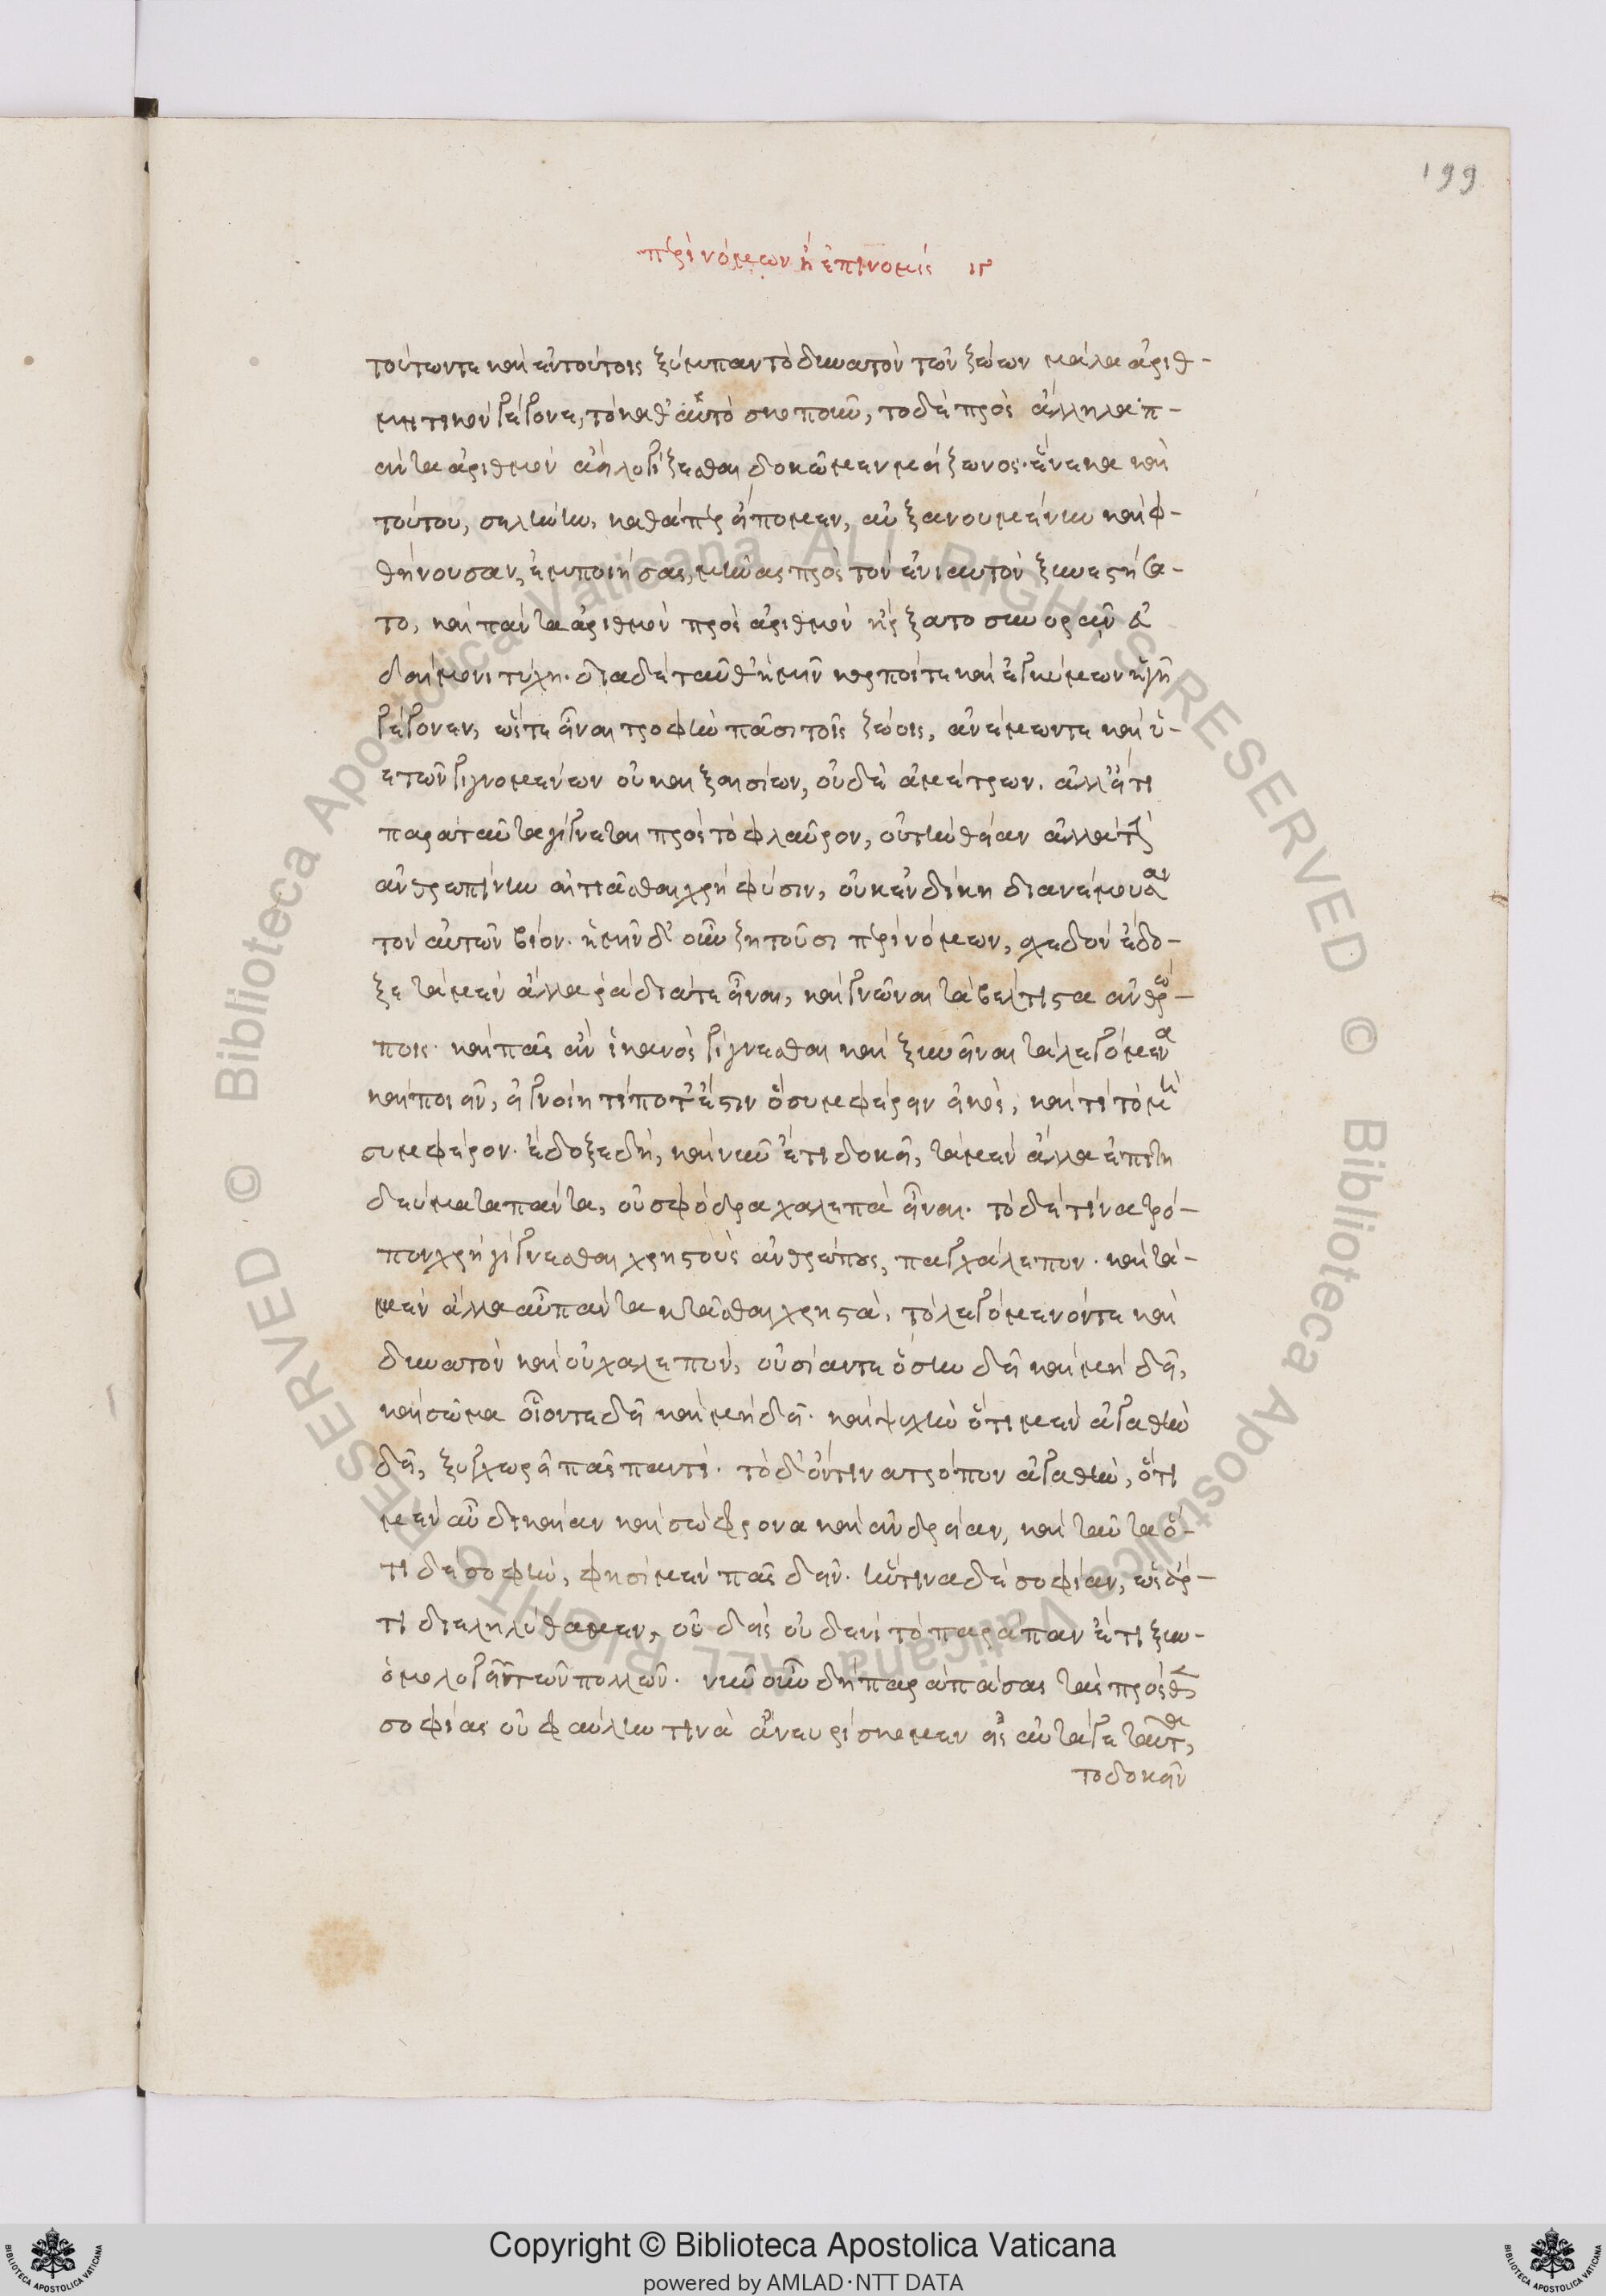 199
περὶ νόμων ἢ ἐπινομίς ιγ
τούτων τε καὶ ἐν τούτοις ξύμπαν τὸ δυνατὸν τῶν ζώων μάλα ἀριθ-
μητικὸν γέγονε, τὸ καθ' αὑτὸ σκοπεῖν, το δὲ πρὸς ἄλληλα π-
άντα ἀριθμὸν ἀναλογίζεσθαι δοκῶμεν μείζωνος· ἕνεκα καὶ
τούτου, σελήνην, καθάπερ εἴπομεν, αὐξανουμένην καὶ φ-
θίνουσαν, ἐμποιήσας, μῆνας πρὸς τὸν ἐνιαυτὸν ξυνεστήσα-
το, καὶ πάντα ἀριθμὸν πρὸς ἀριθμὸν ἤρξατο συνορᾶν εὐ
δαίμονι τύχῃ. διὰ δὲ ταῦθ' ἡμῖν καρποί τε καὶ ἐγκύμων ἡ γῆ
γέγονεν, ὥστε εἶναι τροφὴν πᾶσι τοῖς ζώοις, ἀνέμων τε καὶ ὑ-
ετῶν γιγνομένων οὐκ ἐξαισίων, οὐδὲ ἀμέτρων. ἀλλ' εἴ τι
παρὰ ταῦτα γίγνεται πρὸς τὸ φλαῦρον, οὐ τὴν θείαν ἀλλὰ τὴν
ἀνθρωπίνην αἰτιᾶσθαι χρὴ φύσιν, οὐκ ἐν δίκῃ διανέμουσαν
τὸν αὑτῶν βίον. ἡμῖν δ' οὖν ζητοῦσι περὶ νόμων, σχεδὸν ἔδο-
ξε τὰ μὲν ἄλλα ῥάδιά τε εἶναι, καὶ γνῶναι τὰ βέλτιστα ἀνθρώ-
ποις· καὶ πᾶς ἂν ἱκανὸς γίγνεσθαι καὶ ξυνεῖναι τὰ λεγόμενα
καὶ ποιεῖν, εἰ γνοίη τί ποτ' ἔστιν ὃ συμφέρειν εἰκὸς, καὶ τί τὸ μὴ
συμφέρον. ἔδοξε δὴ, καὶ νῦν ἔτι δοκεῖ, τὰ μὲν ἄλλα ἐπιτη
δεύματα πάντα, οὐ σφόδρα χαλεπὰ εἶναι. τὸ δὲ τίνα τρό-
πον χρὴ γίγνεσθαι χρηστοὺς ἀνθρώπους, παγχάλεπον. καὶ τὰ-
μὲν ἄλλα αὖ πάντα κτᾶσθαι χρηστὰ, τὸ λεγόμενόν τε καὶ
δυνατὸν καὶ οὐ χαλεπὸν, οὐσίαν τε ὅσην δεῖ καὶ μὴ δεῖ,
καὶ σῶμα οἷόν τε δεῖ καὶ μὴ δεῖ. καὶ ψυχὴν ὅτι μὲν ἀγαθὴν
δεῖ, ξυγχωρεῖ πᾶς παντί. τὸ δ' ὅντινα τρόπον ἀγαθὴν, ὅτι
μὲν αὖ δικαίαν καὶ σώφρονα καὶ ἀνδρείαν, καὶ ταῦτα ὅ-
τι δὲ σοφὴν, φησὶ μὲν πᾶς δεῖν. ἥντινα δὲ σοφίαν, ὡς ἄρ-
τι διεληλύθαμεν, οὐδεὶς οὐδενὶ τὸ παράπαν ἔτι ξυν-
ομολογεῖ τῶν πολλῶν. νῦν οὖν δὴ παρὰ πάσας τὰς πρόσθεν
σοφίας οὐ φαύλην τινὰ ἀνευρίσκομεν εἰς αὐτά γε ταῦτα,
το δοκεῖν
Copyright © Biblioteca Apostolica Vaticana
powered by AMLAD·NTT DATA